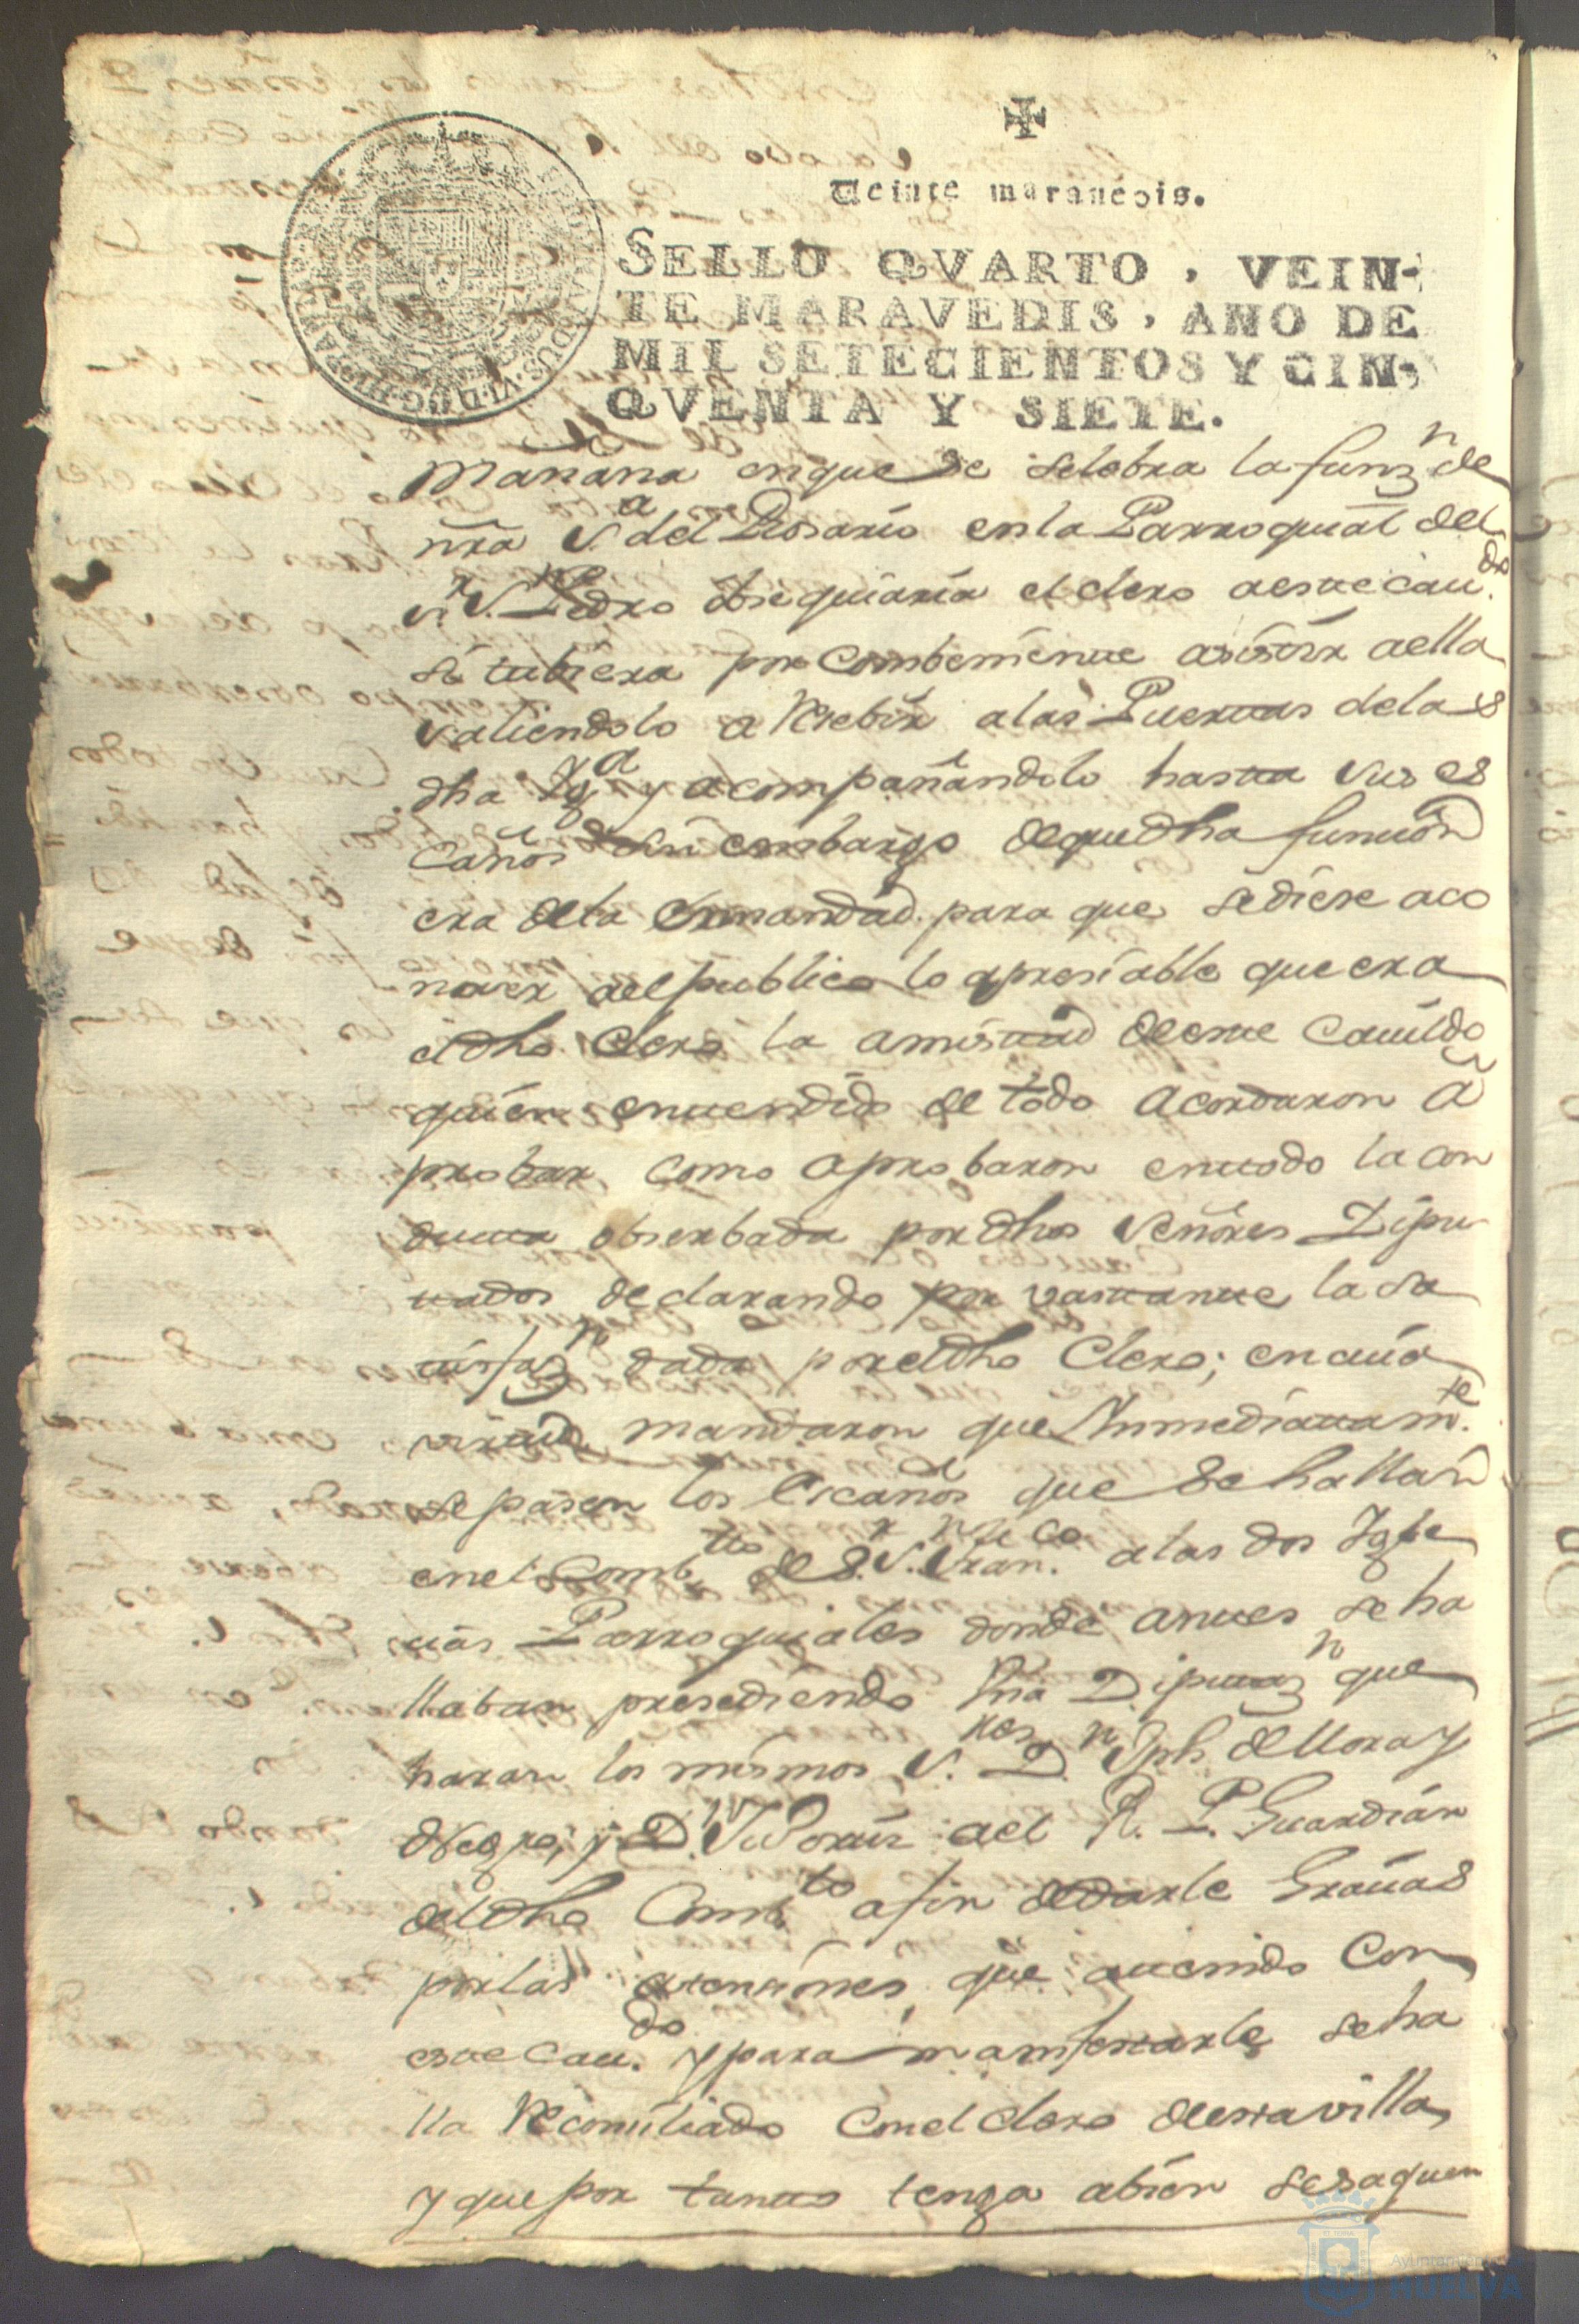 Veinte maravedis.
SELLO QVARTO, VEIN-
TE MARAVEDIS, AÑO DE
MIL SETECIENTOS Y CIN-
QVENTA Y SIETE.
Mañana en que se selebra la funzn de
nra Sa del Rosario en la Parroquial del
Sr Sn Pedro obsequiaria el clero a este Cavdo
si tubiera por combeniente asistir a ella
saliendolo a Resebir a las Puertas de la
dha Yga y acompañandolo hasta sus es
caños sin embargo de que dha funcion
era de la Ermandad para que se diese a co
noser al publico lo apresiable que era
al dho Clero la amistad de este Cavildo
quien entendido de todo acordaron a
probar como aprobaron en todo la con
ducta obserbada por dhos Señores Dipu
tados declarando por vastante la sa
tisfazn dada por el dho Clero; en cuia
virtud mandaron que Ynmediatamte
se pasen los Escaños que se hallan
en el Combto de Sr Sn Franco a las dos Ygle
cias Parroquiales donde antes se ha
llaban presediendo Vna Diputazn que
haran los mismos Sres Dn Jph de Mora y
Negro, y Dn Ortiz al R. P. Guardian
del dho Combto a fin de darle Gracias
por las atensiones que a tenido con
este Cavdo y para manifestarle se ha
lla Reconciliado con el Clero de esta villa
y que por tanto tenga a bien se saquen
Ayuntamiento
HUELVA